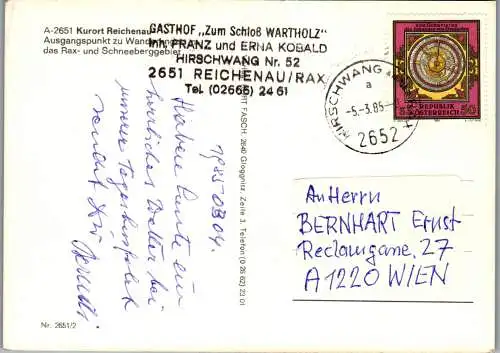 A-2651 Kurort Reichenau
Ausgangspunkt zu Wander
das Rax- und Schneeberggebiet
GASTHOF „Zum Schloß WARTHOLZ"
Inh. FRANZ und ERNA KOBALD
HIRSCHWANG Nr. 52
2651 REICHENAU/RAX
Tel. (02666) 24 61
HIRSCHWANG
a
-5.-3.85-
2652
REPUBLIK
ÖSTERREICH
1985 03 04.
Haben heute ein
herrliches Wetter bei
unserer
FASCH, 2640 Gloggnitz, Zeile 3, Telefon (0 26 62) 23 01
An Herrn
BERNHART Ernst
Reclamgasse. 27
A 1220 WIEN
Nr. 2651/2